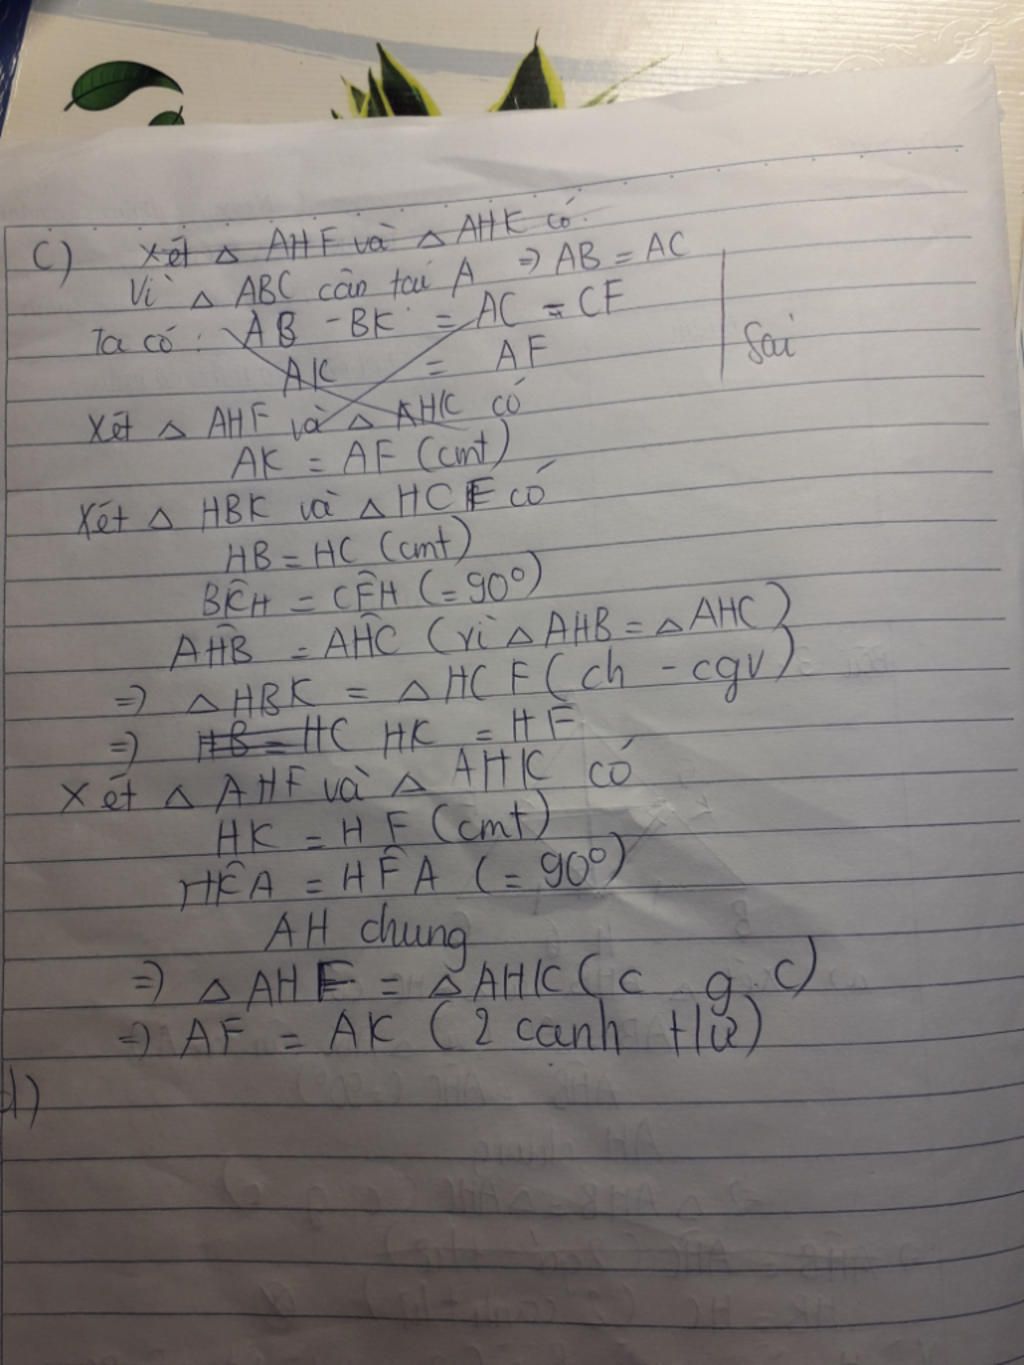 c) Xét △ AHF và △ AHK có.
Vì △ ABC cân tại A ⇒ AB = AC
Ta có: AB - BK = AC = CF
Sai
AK = AF
Xét △ AHF và △ AHK có
AK = AF (cmt)
Xét △ HBK và △ HCF có
HB = HC (cmt)
BK̂H = CF̂H (= 90°)
AĤB = AĤC (vì △ AHB = △ AHC)
⇒ △ HBK = △ HCF (ch - cgv)
⇒ HB = HC HK = HF
Xét △ AHF và △ AHK có
HK = HF (cmt)
HK̂A = HF̂A (= 90°)
AH chung
⇒ △ AHF = △ AHK (c g.c)
⇒ AF = AK (2 cạnh tứ)
d)